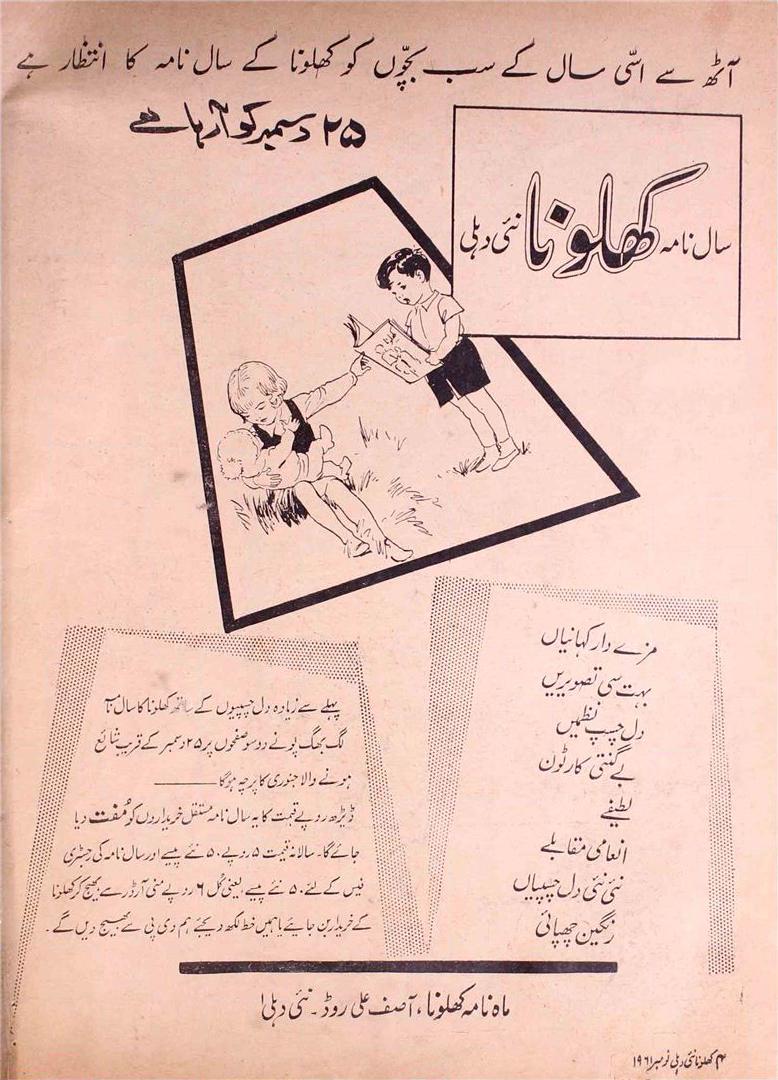 آٹھ سے اسّی سال کے سب بچّوں کو کھلونا کے سال نامہ کا انتظار ہے
۲۵ دسمبر کو آ رہا ہے
سال نامہ کھلونا نئی دہلی
مزے دار کہانیاں
بہت سی تصویریں
دل چسپ نظمیں
بے گنتی کارٹون
لطیفے
انعامی مقابلے
نئی نئی دل چسپیاں
رنگین چھپائی
پہلے سے زیادہ دل چسپیوں کے ساتھ کھلونا کا سال نامہ
لگ بھگ پونے دو سو صفحوں پر ۲۵ دسمبر کے قریب شائع
ہونے والا جنوری کا پرچہ ہوگا
ڈیڑھ روپے قیمت کا یہ سال نامہ مستقل خریداروں کو مُفت دیا
جائے گا۔ سالانہ قیمت ۵ روپے ۵۰ نئے پیسے اور سال نامہ کی رجسٹری
فیس کے لئے ۵۰ نئے پیسے، یعنی کُل ۶ روپے منی آرڈر سے بھیج کر کھلونا
کے خریدار بن جائے یا ہمیں خط لکھ دیجئے ہم وی پی سے بھیج دیں گے۔
ماہ نامہ کھلونا، آصف علی روڈ۔ نئی دہلی ۱
۴ کھلونا نئی دہلی نومبر ۱۹۶۱